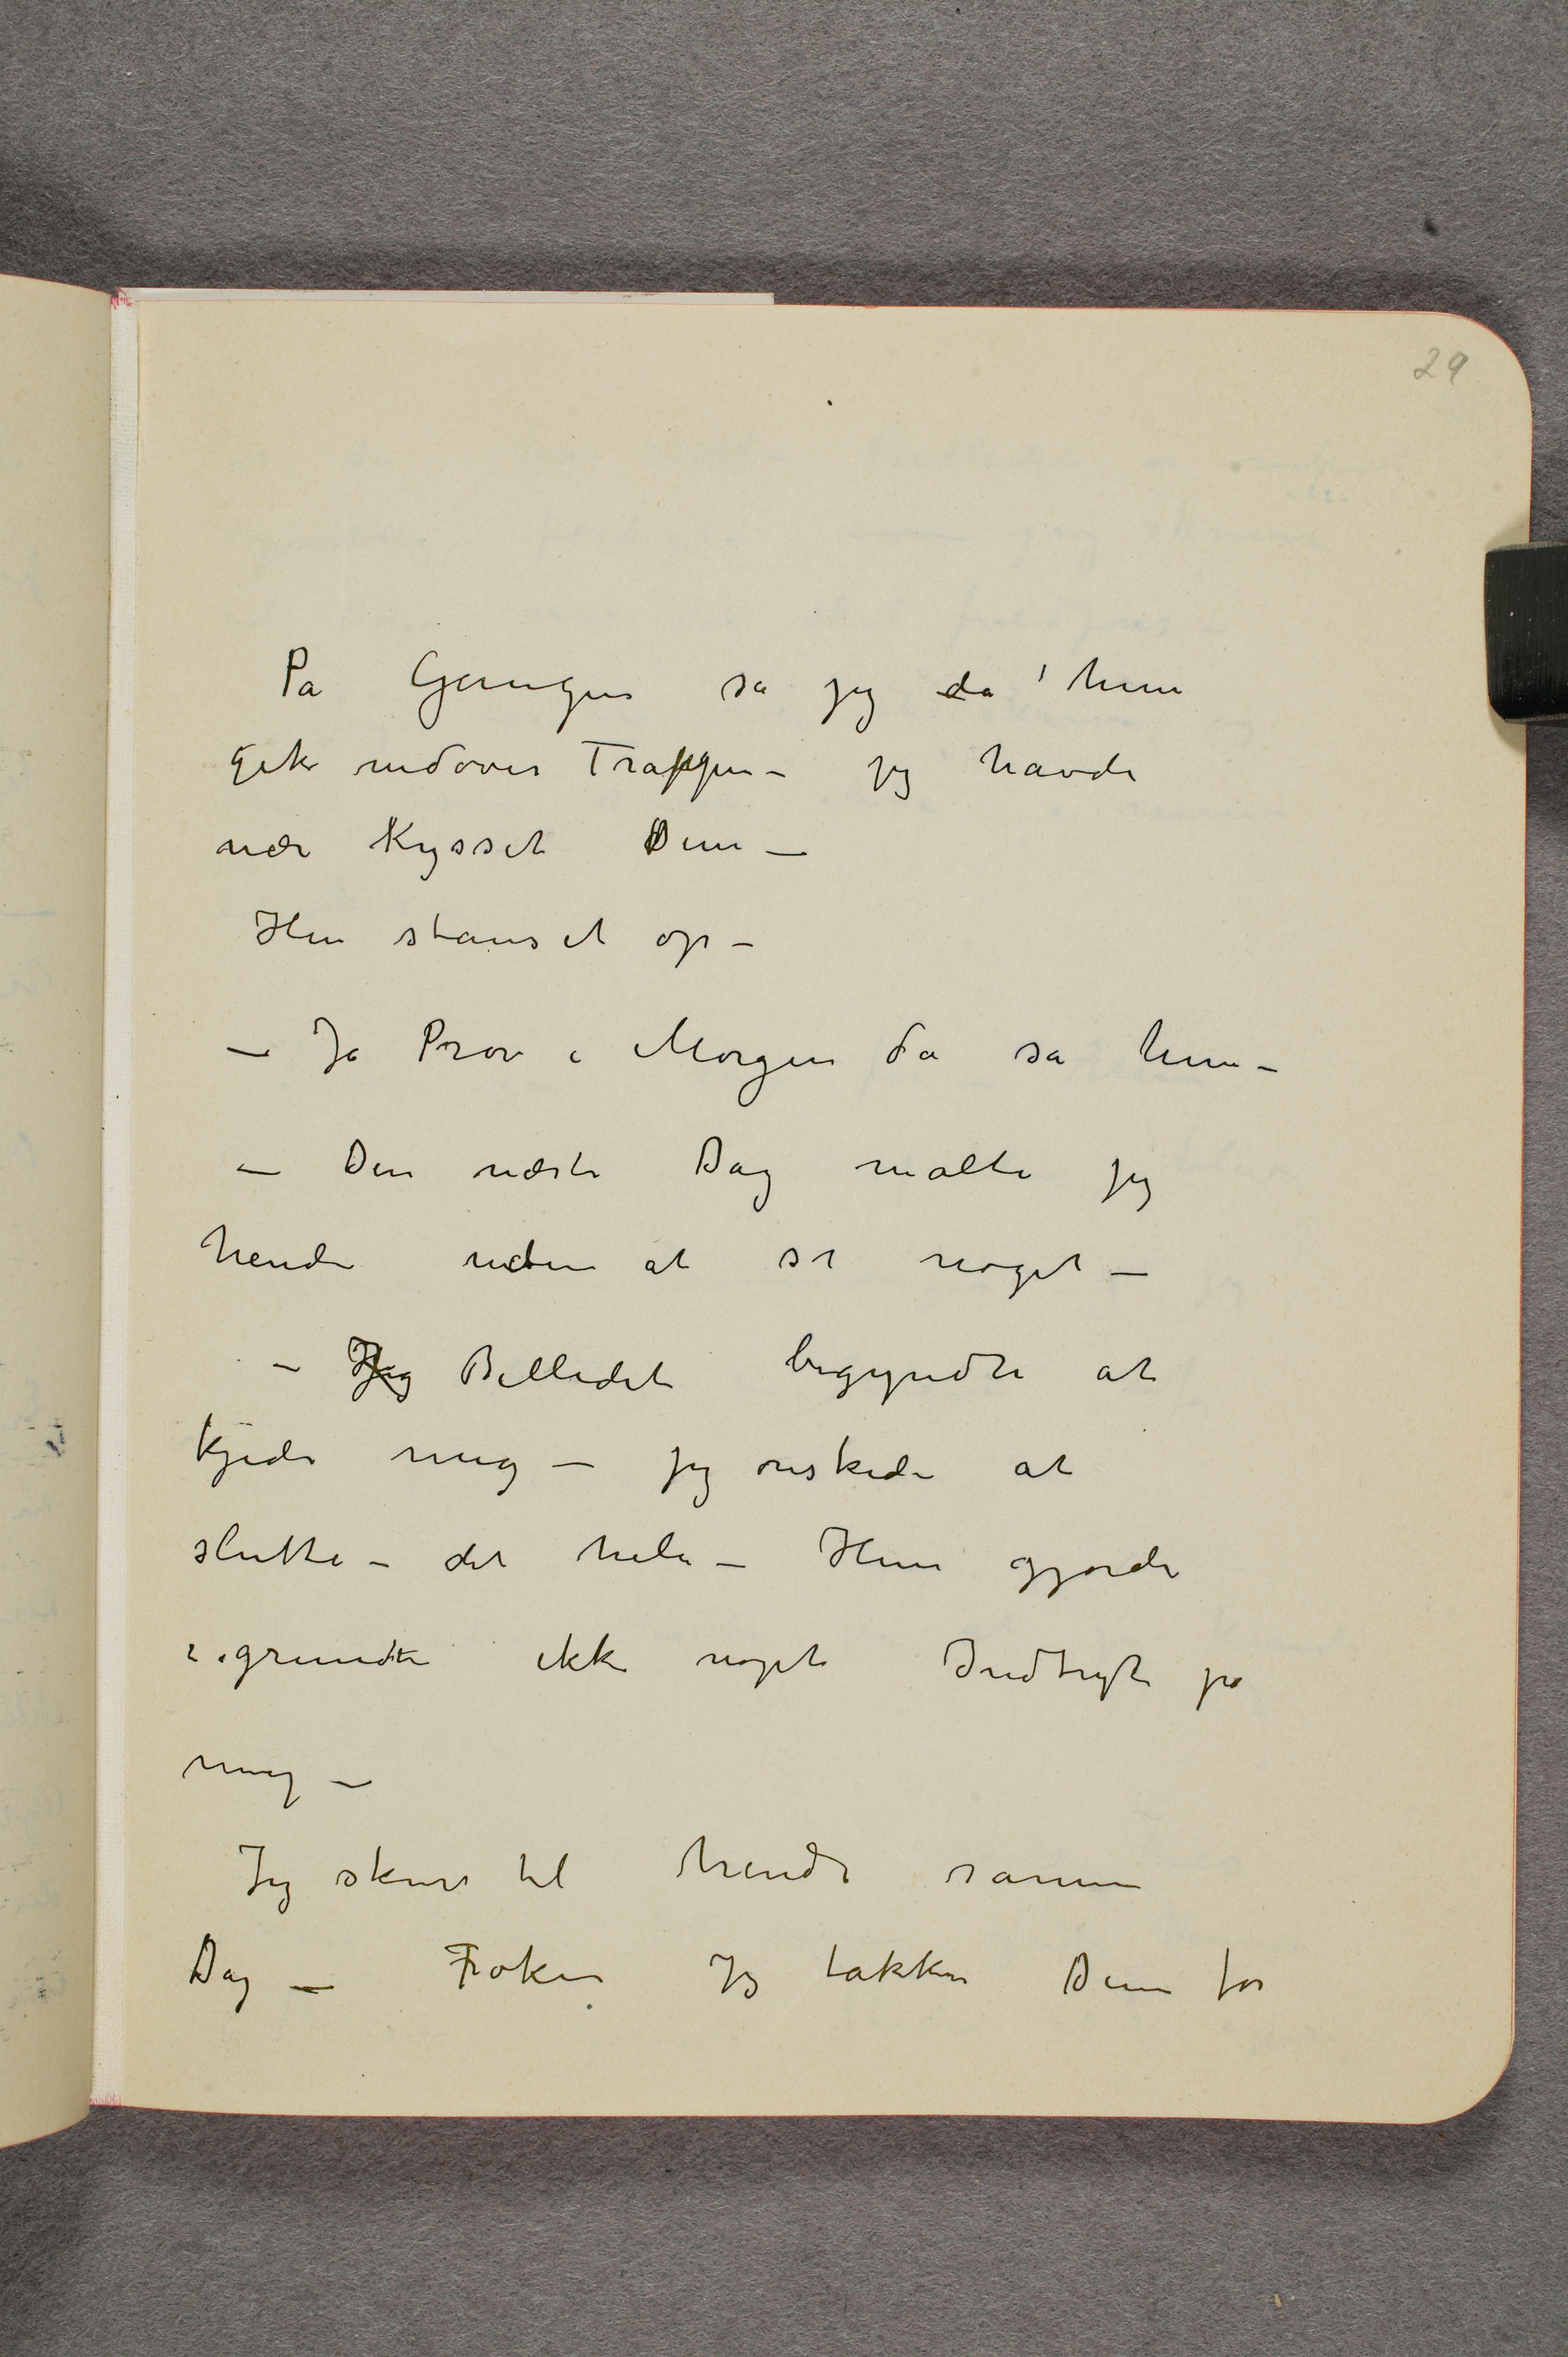 29
På Gangen sa jeg da hun
gik nedover Trappen – jeg havde
nær kysset Dem –
Hun stanset op –
– Ja Prøv i Morgen da sa hun –
– Den næste Dag malte jeg
hende uden at se noget –
– Jeg Billedet begyndte at
kjede mig – jeg ønskede at
slutte – det hele – Hun gjorde
i grunden ikke noget Indtryk på
mig –
Jeg skrev til hende samme
Dag – Frøken Jeg takker Dem for